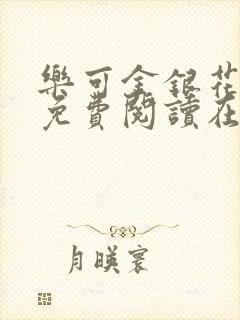 樂可金銀花
免費閱讀在
月暎寰